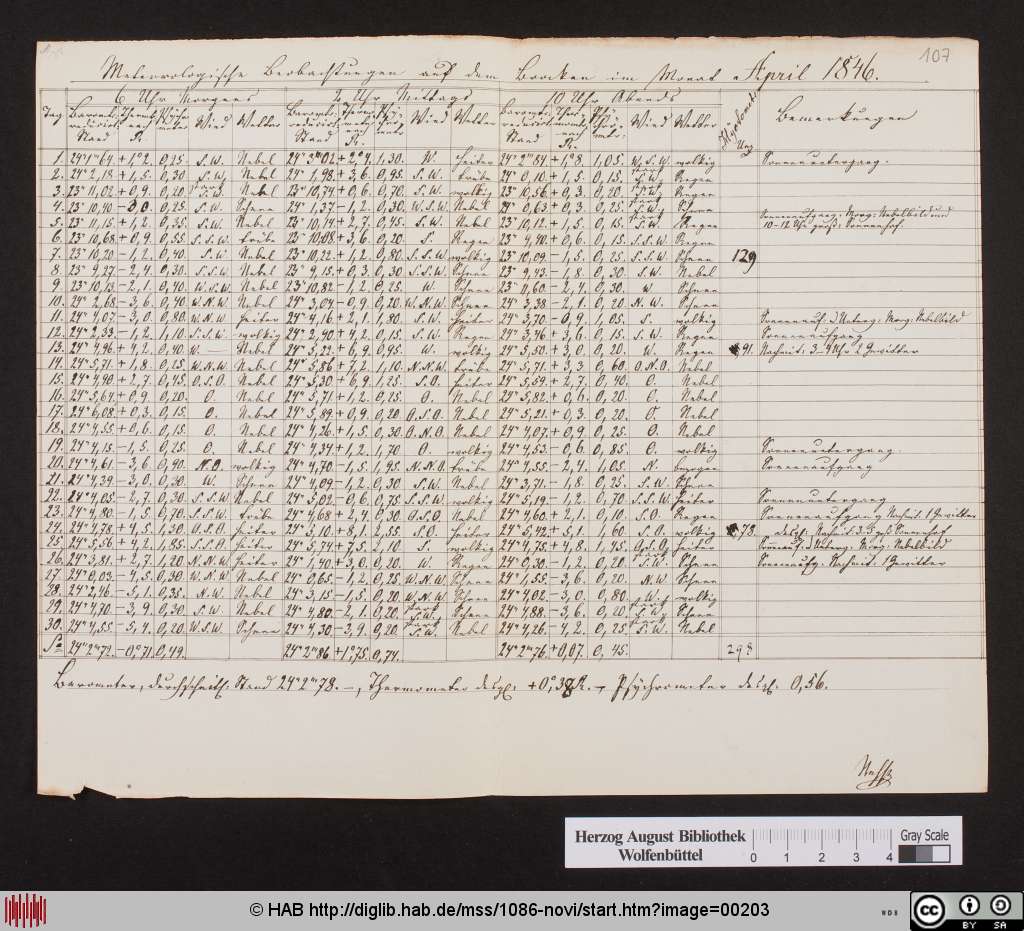 107
Meteorologische Beobachtungen auf dem Brocken im Monat April 1846.
6 Uhr Morgens 2 Uhr Mittags 10 Uhr Abends Bemerkungen
Tag Wind Wetter Wind Wetter Wind Wetter
1. +1,2. 0,25. S.W. Nebel +2,4. 1,30. W. heiter +1,8. 1,05. W.S.W. wolkig Sonnenuntergang.
2. 24" 2,18. +1,5. 0,30. S.W. Nebel 24" 1,98. +3,6. 0,95. S.W. trübe 24" 0,10. +1,5. 0,15. Regen
3. 23" 11,02. +0,9. 0,20. Nebel 23" 10,74. +0,6. 0,70. S.W. wolkig 23" 10,56. +0,3. 0,20. Regen
4. 23" 10,40. 0,25. S.W. Schnee 24" 1,37. -1,2. 0,30. W.S.W. Nebel 24" 0,63. +0,3. 0,25.
5. 23" 11,15. +1,2. 0,35. S.W. Nebel 23" 10,14. +2,7. 0,45. S.W. Nebel 23" 10,12. +1,5. 0,15. S.W. Regen
6. 23" 10,68. +0,9. 0,55. S.S.W. trübe +3,6. 0,20. S. Regen 23" 9,40. +0,6. 0,15. S.S.W. Regen
7. 23" 10,20. -1,2. 0,40. S.W. Nebel 23" 10,22. +1,2. 0,80. S.S.W. wolkig 23" 10,09. -1,5. 0,25. S.S.W. Schnee 129
8. 23" 9,27. -2,4. 0,30. S.S.W. Nebel 23" 9,15. +0,3. 0,30. S.S.W. Schnee 23" 9,43. -1,8. 0,30. S.W. Nebel
9. 23" 10,13. -2,1. 0,40. W.S.W. Nebel 23" 10,82. -1,2. 0,25. W. Schnee 23" 11,60. -2,4. 0,30. W. Schnee
10. 24" 2,68. -3,6. 0,40. W.N.W. Nebel 24" 3,04. -0,9. 0,20. W.N.W. Schnee 24" 3,38. -2,1. 0,20. N.W. Schnee
11. 24" 4,07. -3,0. 0,80. W.N.W. heiter 24" 4,16. +2,1. 1,80. S.W. heiter 24" 3,70. -0,9. 1,05. S. wolkig
12. 24" 2,33. -1,2. 1,10. S.S.W. wolkig 24" 2,40. +4,2. 0,15. S.W. Regen 24" 3,46. +3,6. 0,15. S.W. Regen Sonnenaufgang
13. 24" 4,96. +4,2. 0,40. W. Nebel 24" 5,22. +6,9. 0,95. W. wolkig 24" 5,50. +3,0. 0,20. W. Regen 91. Nachmit. 3-4 Uhr 2 Gewitter
14. 24" 5,71. +1,8. 0,25. W.N.W. Nebel 24" 5,86. +7,2. 1,10. N.N.W. trübe 24" 5,71. +3,3. 0,60. O.N.O. Nebel
15. 24" 4,90. +2,7. 0,45. O.S.O. Nebel 24" 5,30. +6,9. 1,25. S.O. heiter 24" 5,59. +2,7. 0,40. O. Nebel
16. 24" 5,64. +0,9. 0,20. O. Nebel 24" 5,71. +1,2. 0,25. O. Nebel 24" 5,82. +0,6. 0,20. O. Nebel
17. 24" 6,08. +0,3. 0,15. O. Nebel 24" 5,89. +0,9. 0,20. O.S.O. Nebel 24" 5,21. +0,3. 0,20. O. Nebel
18. 24" 4,55. +0,6. 0,15. O. Nebel 24" 4,26. +1,5. 0,30. O.N.O. Nebel 24" 4,07. +0,9. 0,25. O. Nebel
19. 24" 4,15. -1,5. 0,25. O. Nebel 24" 4,34. +1,2. 1,70. O. wolkig 24" 4,53. -0,6. 0,85. O. wolkig Sonnenuntergang.
20. 24" 4,61. -3,6. 0,40. N.O. wolkig 24" 4,70. -1,5. 1,95. N.N.O. trübe 24" 4,55. -2,4. 1,05. N. Sonnenaufgang
21. 24" 4,39. -3,0. 0,30. W. Schnee 24" 4,09. -1,2. 0,30. S.W. Nebel 24" 3,71. -1,8. 0,25. S.W. Schnee
22. 24" 4,05. -2,7. 0,30. S.S.W. Nebel 24" 5,02. -0,6. 0,75. S.S.W. wolkig 24" 5,19. -1,2. 0,70. S.S.W. heiter Sonnenuntergang
23. 24" 4,80. -1,5. 0,70. S.S.W. trübe 24" 4,68. +2,4. 0,30. O.S.O. Nebel 24" 4,60. +2,1. 0,10. S.O. Regen Sonnenaufgang Nachmit. 1 Gewitter
24. 24" 4,78. +4,5. 1,30. O.S.O. heiter 24" 5,10. +8,1. 2,55. S.O. heiter 24" 5,42. +5,1. 1,60. S.O. wolkig 78.
25. 24" 5,56. +4,2. 1,85. S.S.O. heiter 24" 5,74. +7,5. 2,10. S. wolkig 24" 4,75. +4,8. 1,45. heiter
26. 24" 3,81. +2,7. 1,20. N.N.W. heiter 24" 1,40. +3,0. 0,20. W. Regen 24" 0,30. -1,2. 0,20. S.W. Schnee Sonnenaufg. Nachmit. 1 Gewitter
27. 24" 0,03. -4,5. 0,30. W.N.W. Nebel 24" 0,65. -1,2. 0,25. W.N.W. Schnee 24" 1,55. -3,6. 0,20. N.W. Schnee
28. 24" 2,46. -5,1. 0,35. N.W. Nebel 24" 3,15. -1,5. 0,20. W.N.W. Schnee 24" 4,02. -3,0. 0,80. W. wolkig
29. 24" 4,70. -3,9. 0,30. S.W. Nebel 24" 4,80. -2,1. 0,20. S.W. Schnee 24" 4,88. -3,6. 0,20. S.W. Schnee
30. 24" 4,55. -5,4. 0,20. W.S.W. Schnee 24" 4,30. -3,9. 0,20. S.W. Nebel 24" 4,26. -4,2. 0,25. S.W. Nebel
24" 2"72. -0,°71. 0,49. 24" 2"86 +1°,75. 0,74. 24" 2"76. +0,07. 0,45. 298
Barometer, durchschnitl. Stand 24" 2"78. —, Thermometer desgl. Psychrometer desgl. 0,56.
Herzog August Bibliothek
Wolfenbüttel
0 1 2 3 4
Gray Scale
© HAB http://diglib.hab.de/mss/1086-novi/start.htm?image=00203
WDB
cc BY SA